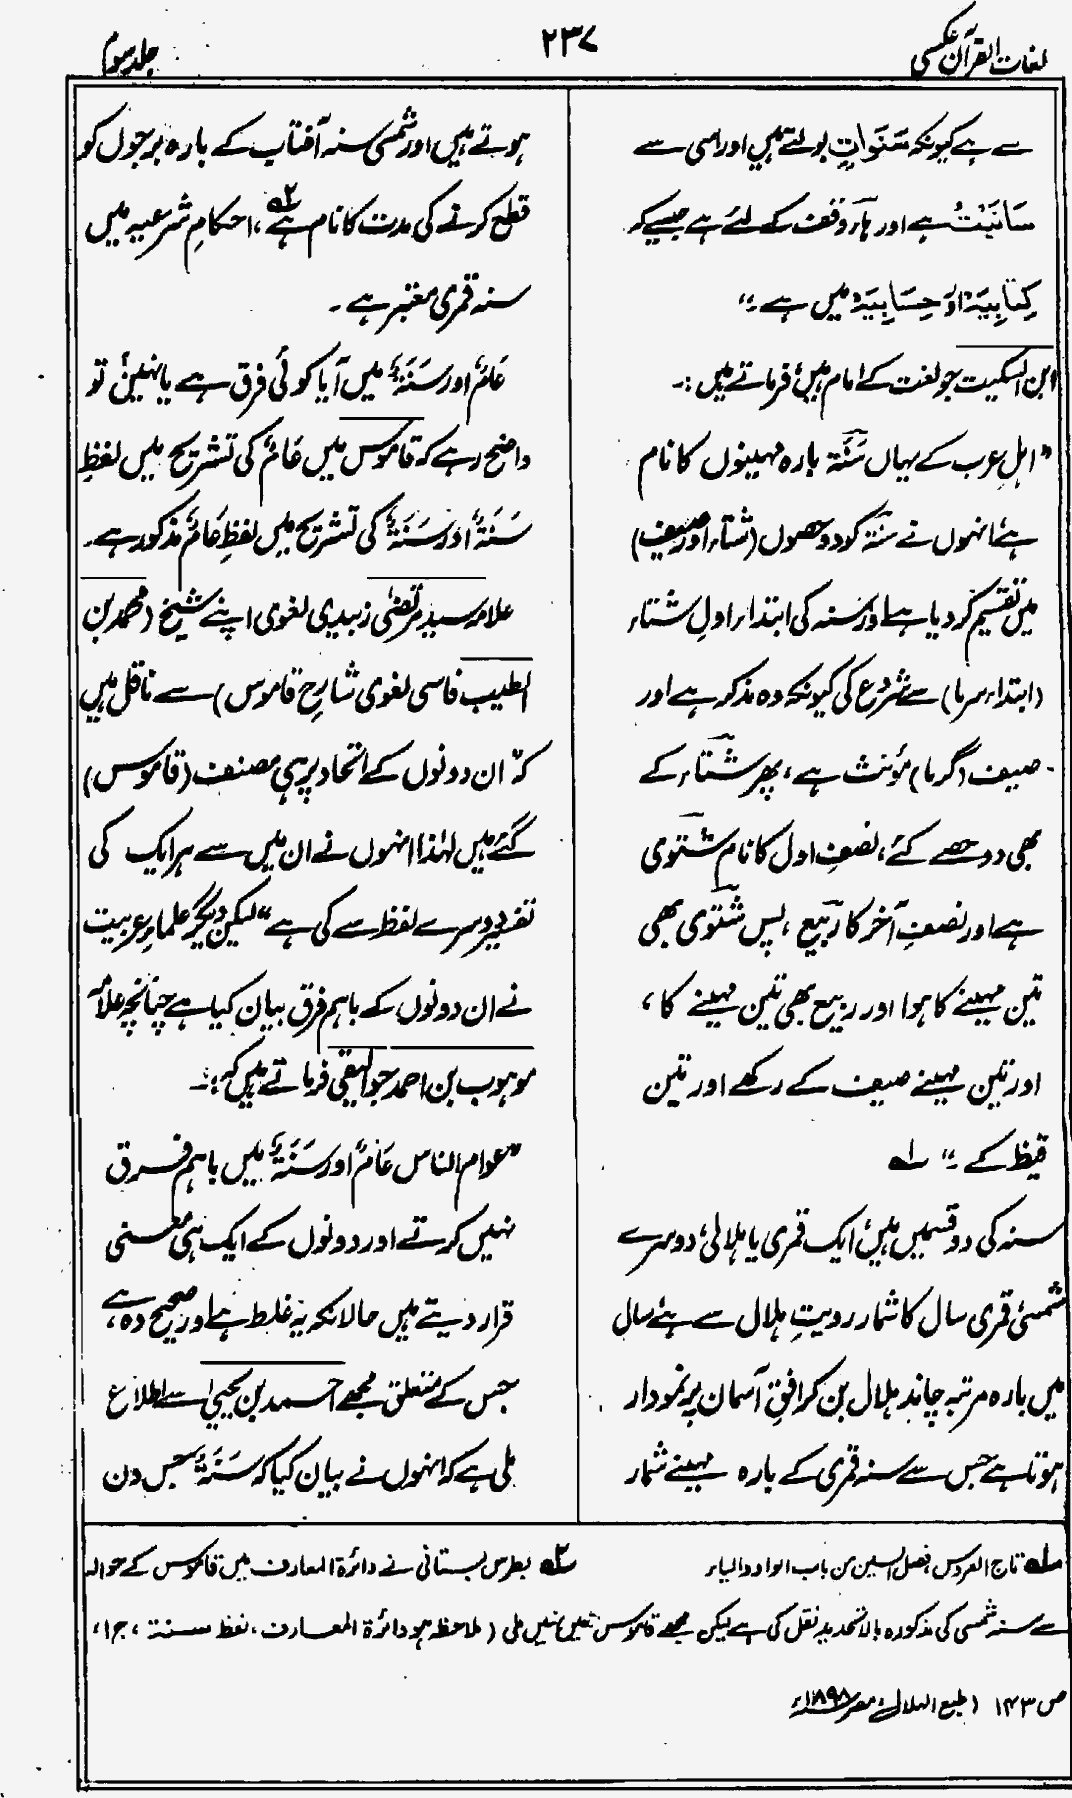 لغات القرآن عکسی
۲۳۷
جلد سوم
سے ہے کیونکہ سَنَوَاتٍ بولتے ہیں اور اسی سے
سَانَیْتُ ہے اور ہاء وقف کے لئے ہے جیسے کہ
کِتَابِیَہْ اور حِسَابِیَہْ میں ہے ۔"
ابن السکیت جو لغت کے امام ہیں، فرماتے ہیں :۔
"اہلِ عرب کے یہاں سَنَۃ بارہ مہینوں کا نام
ہے، انہوں نے سَنَۃ کو دو حصوں (شتاء اور صیف)
میں تقسیم کر دیا ہے اور سنہ کی ابتداء اولِ شتاء
(ابتداء سرما) سے شروع کی کیونکہ وہ مذکر ہے اور
صیف (گرما) مؤنث ہے، پھر شتاء کے
بھی دو حصے کئے، نصفِ اول کا نام شَتَوِی
ہے اور نصفِ آخر کا ربیع، پس شَتَوِی بھی
تین مہینے کا ہوا اور ربیع بھی تین مہینے کا،
اور تین مہینے صیف کے رکھے اور تین
قیظ کے ۔" لہ۱
سنہ کی دو قسمیں ہیں، ایک قمری یا ہلالی، دوسرے
شمسی، قمری سال کا شمار رویتِ ہلال سے ہے، سال
میں بارہ مرتبہ چاند ہلال بن کر افقِ آسمان پر نمودار
ہوتا ہے جس سے سنہ قمری کے بارہ مہینے شمار
ہوتے ہیں اور شمسی سنہ آفتاب کے بارہ برجوں کو
قطع کرنے کی مدت کا نام ہے ۲ہ، احکامِ شرعیہ میں
سنہ قمری معتبر ہے ۔
عَامٌ اور سَنَۃٌ میں آیا کوئی فرق ہے یا نہیں، تو
واضح رہے کہ قاموس میں عَامٌ کی تشریح میں لفظِ
سَنَۃٌ اور سَنَۃٌ کی تشریح میں لفظِ عَامٌ مذکور ہے۔
علامہ سید مرتضیٰ زبیدی لغوی اپنے شیخ (محمد بن
الطیب فاسی لغوی شارح قاموس) سے ناقل ہیں
کہ "ان دونوں کے اتحاد پر ہی مصنف (قاموس)
گئے ہیں لہٰذا انہوں نے ان میں سے ہر ایک کی
تفسیر دوسرے لفظ سے کی ہے" لیکن دیگر علماءِ عربیت
نے ان دونوں کے باہم فرق بیان کیا ہے چنانچہ علامہ
موہوب بن احمد جوالیقی فرماتے ہیں کہ :۔
"عوام الناس عَامٌ اور سَنَۃٌ میں باہم فرق
نہیں کرتے اور دونوں کے ایک ہی معنی
قرار دیتے ہیں حالانکہ یہ غلط ہے اور صحیح وہ ہے،
جس کے متعلق مجھے احمد بن یحییٰ سے اطلاع
ملی ہے کہ انہوں نے بیان کیا کہ سَنَۃٌ جس دن
لہ۱ تاج العروس، فصل السین من باب الواو والیاء
۲ہ بطرس بستانی نے دائرۃ المعارف میں قاموس کے حوالہ
سے سنہ شمسی کی مذکورہ بالا تحدید نقل کی ہے لیکن مجھے قاموس میں نہیں ملی (ملاحظہ ہو دائرۃ المعارف، لفظ سنۃ، ج ۱۰،
ص ۱۴۳ (طبع الہلال، مصر ۱۸۹۸ء